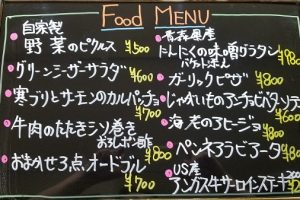 Food MENU
自家製
野菜のピクルス ¥500
グリーンシーザーサラダ ¥600
寒ブリとサーモンのカルパッチョ ¥700
牛肉のたたきシソ巻き
おろしポン酢 ¥800
おまかせ3点オードブル ¥700
青森県産
にんにくの味噌グラタン
バケット
ガーリックピザ ¥800
じゃがいものアンチョビバターソテー ¥600
海老のアヒージョ ¥800
ペンネアラビアータ ¥800
US産
アンガス牛サーロインステーキ